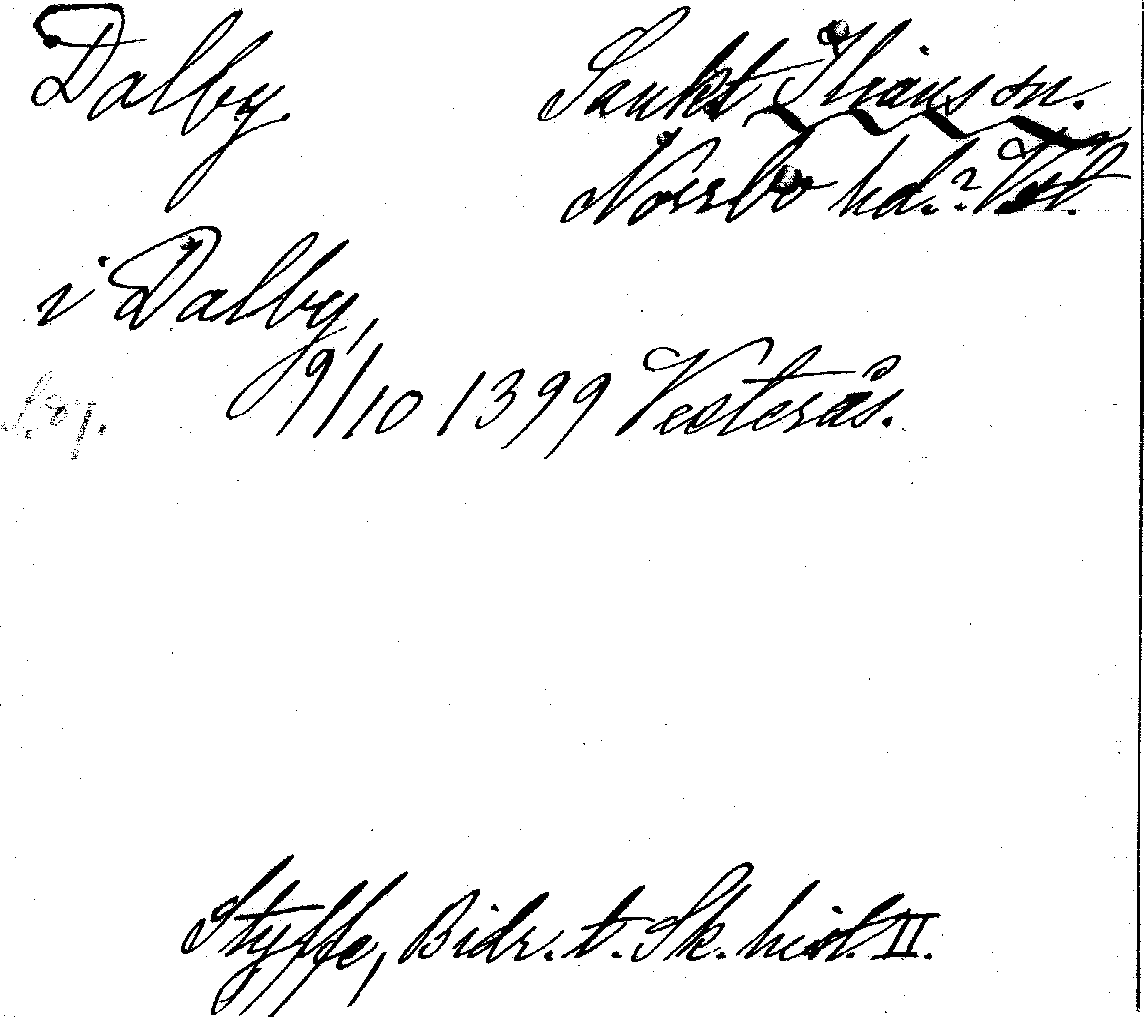 Dalby. Sankt Ilians sn.
Norrbo hd.? Vstl.
i Dalby,
9/10 1399 Vesterås.
Styffe, Bidr. t. Sk. hist. II.